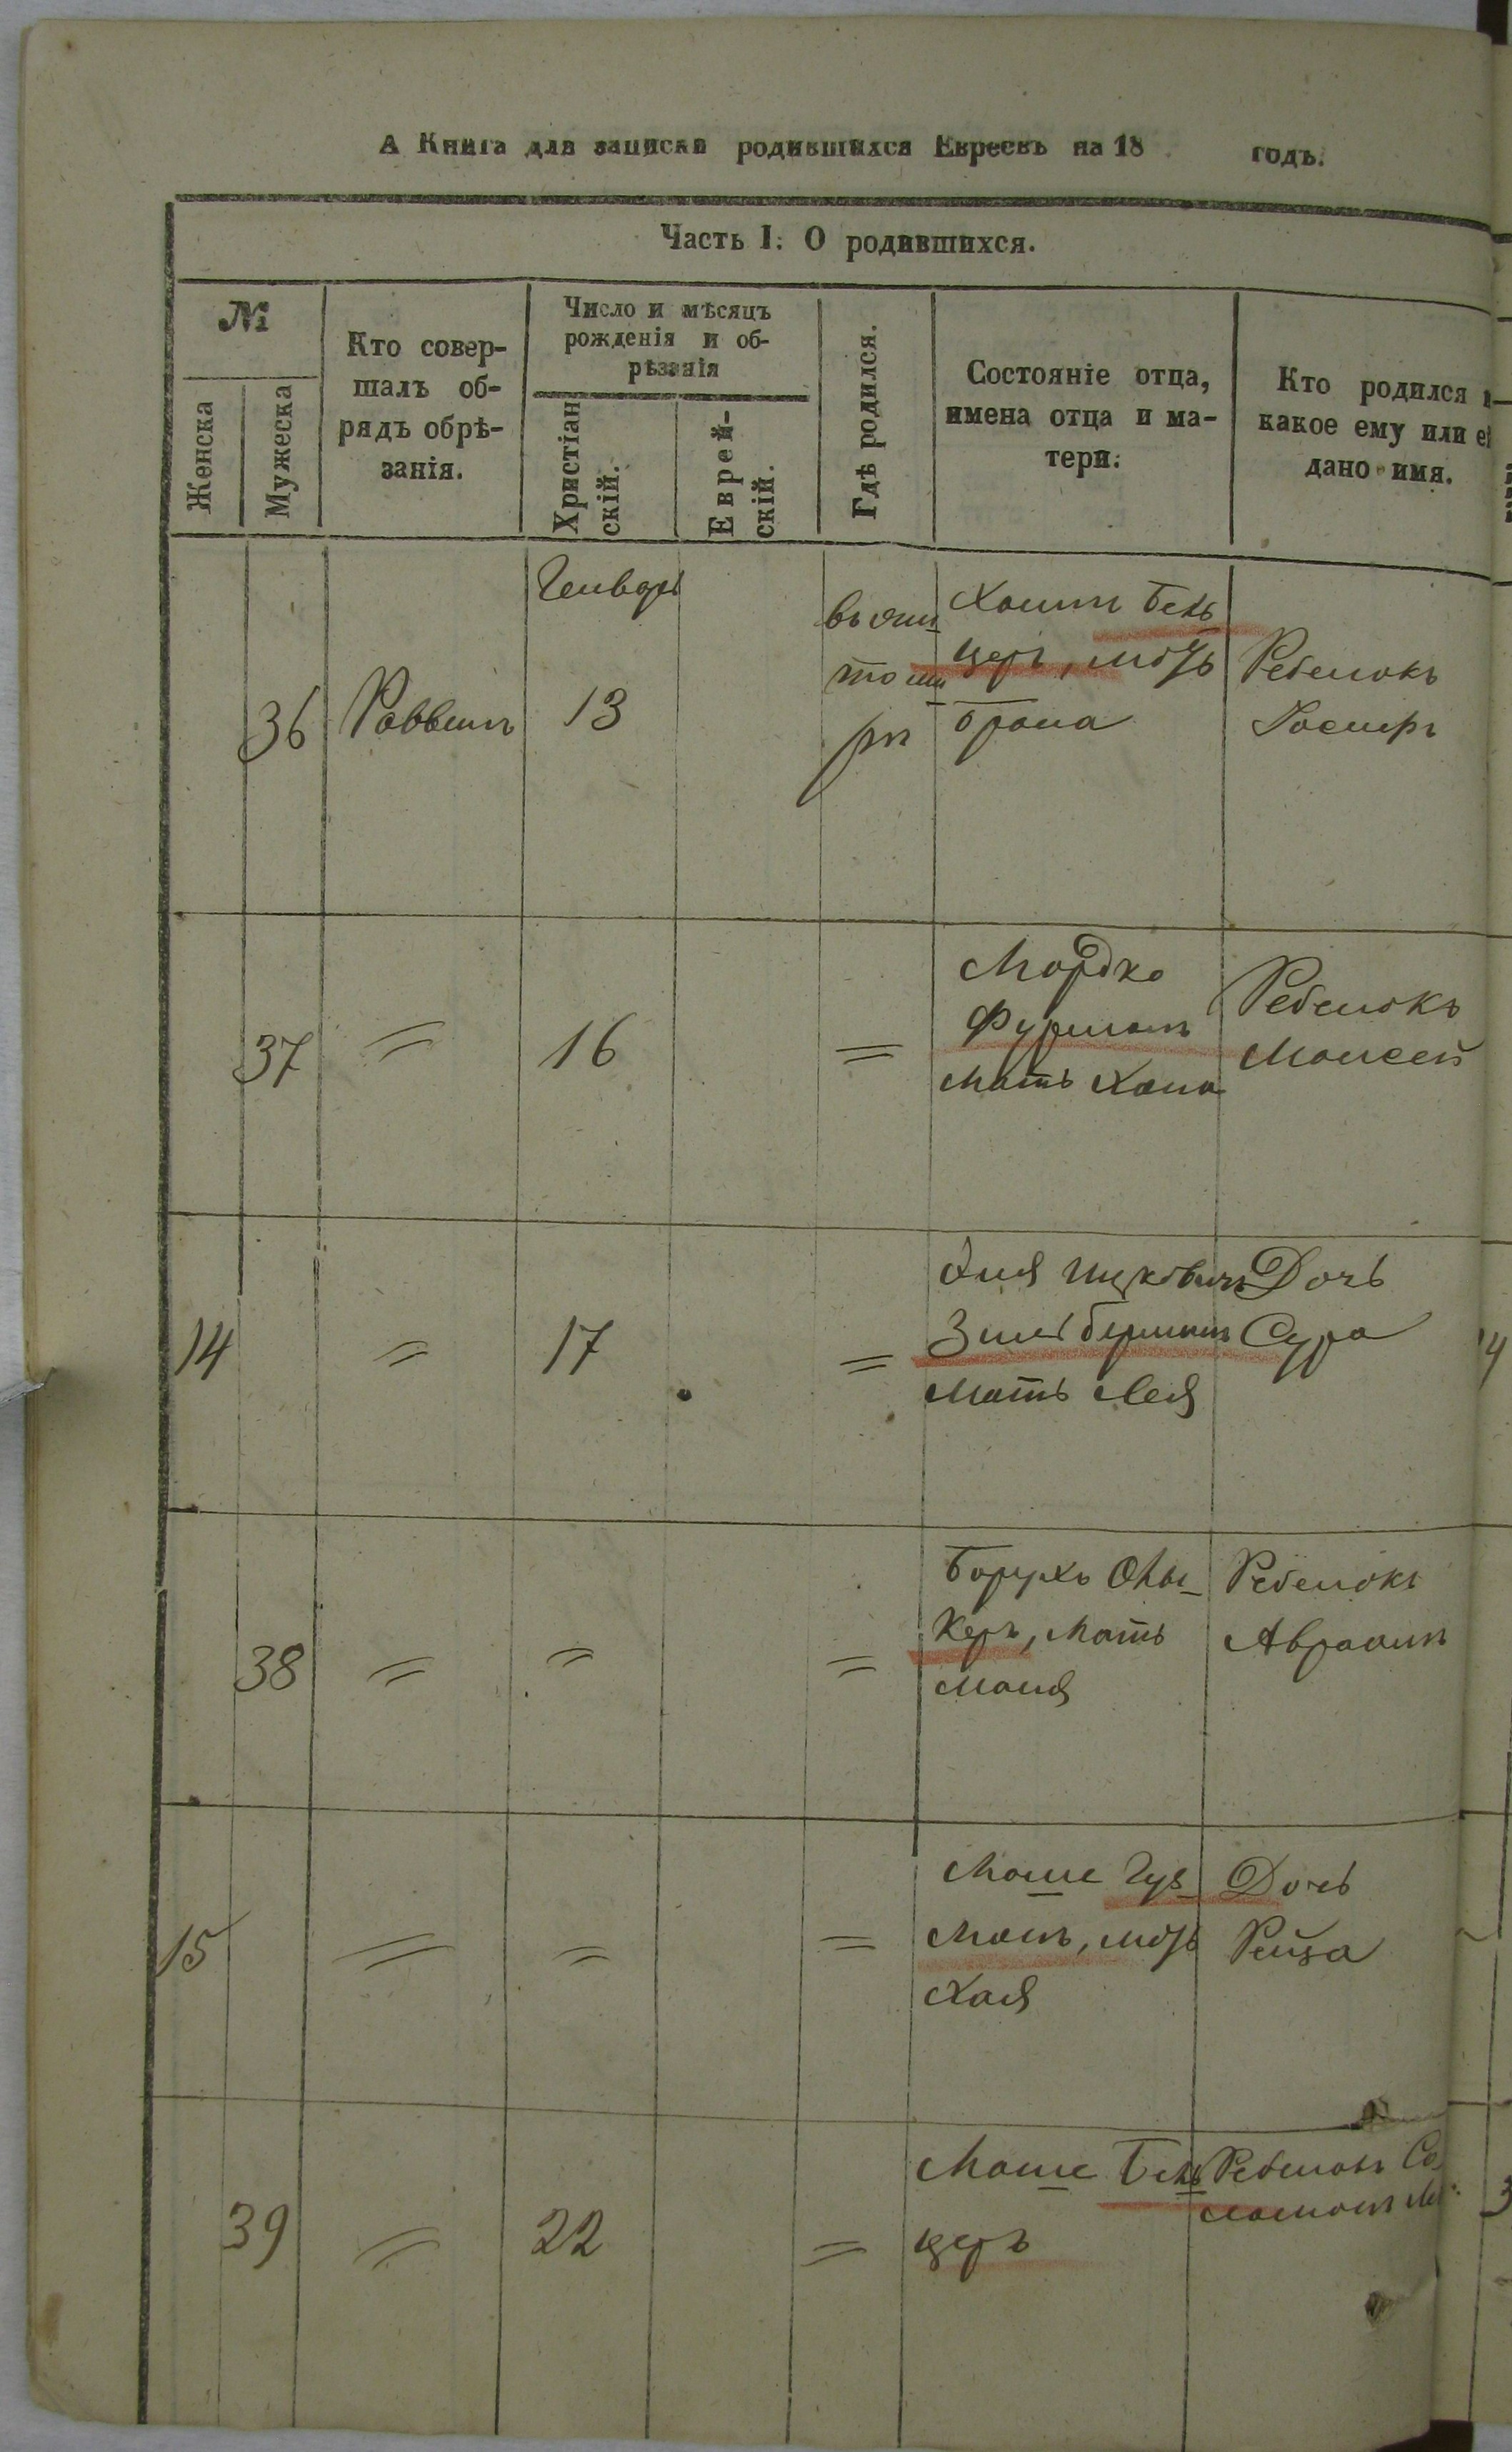 А Книга для записки родившихся Евреевъ на 18 годъ.
Часть I. О родившихся.
№
Женска
Мужеска
Кто совер-
шалъ об-
рядъ обрѣ-
занія.
Число и мѣсяцъ
рожденія и об-
рѣзанія
Христіан
скій.
Еврей-
скій.
Гдѣ родился.
Состояніе отца,
имена отца и ма-
тери.
Кто родился и
какое ему или ей
дано имя.
Генварь
36
Раввинъ
13
въ
Хаимъ Бель
церъ, мать
Брана
Ребенокъ
37
=
16
=
Мордко
Фурманъ
Мать Хана
Ребенокъ
Моисей
14
=
17
=
Ицковичъ
Зильберманъ
Мать Лея
Дочь
Сура
38
=
=
=
Борухъ Олы-
керъ, Мать
Маня
Ребенокъ
Авраамъ
15
=
=
=
Моше Гуз-
манъ, мать
Хая
Дочь
Рейза
39
=
22
=
Моше Бель
церъ
Ребенокъ Со
ломонъ